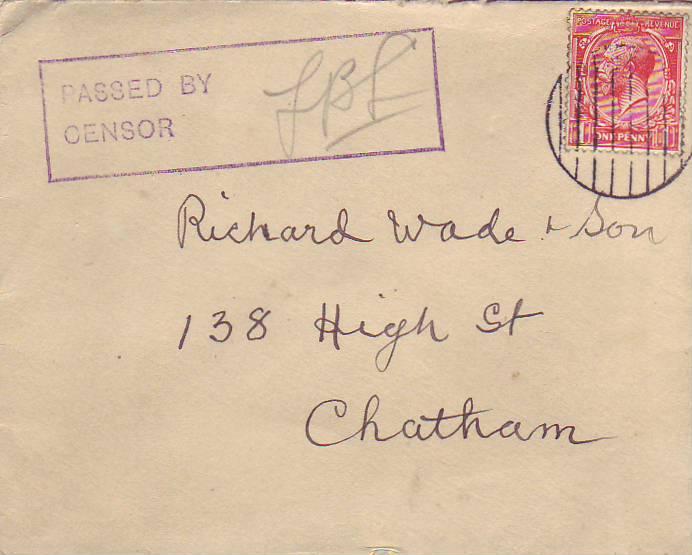 PASSED BY
CENSOR
POSTAGE REVENUE
ONE PENNY
Richard Wade & Son
138 High St
Chatham